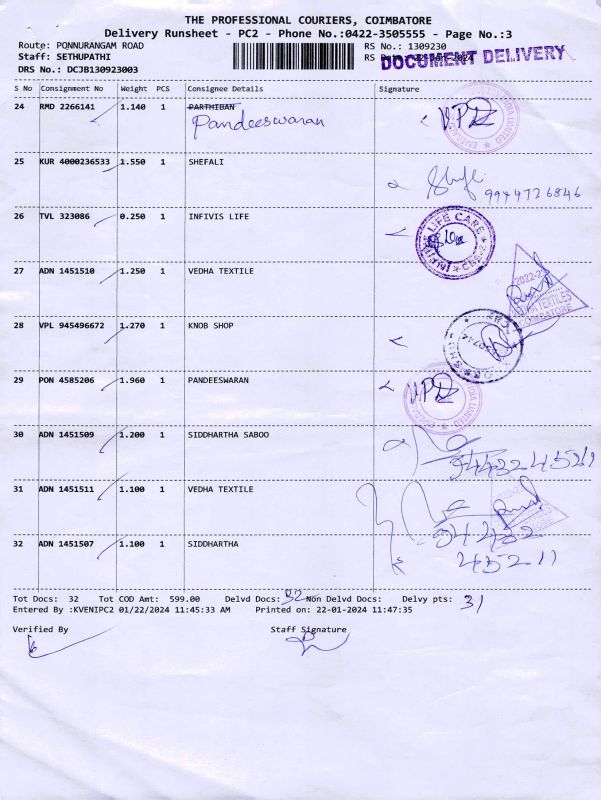 THE PROFESSIONAL COURIERS, COIMBATORE
Delivery Runsheet - PC2 - Phone No.:0422-3505555 - Page No.:3
Route: PONNURANGAM ROAD RS No.: 1309230
Staff: SETHUPATHI RS D
DOCUMENT DELIVERY
DRS No.: DCJB130923003
S No Consignment No Weight PCS Consignee Details Signature
24 RMD 2266141 1.140 1 PARTHIBAN
Pandeeswaran
25 KUR 4000236533 1.550 1 SHEFALI
9944726846
26 TVL 323086 0.250 1 INFIVIS LIFE
LIFE CARE
27 ADN 1451510 1.250 1 VEDHA TEXTILE
2022-23
TEXTILES
COIMBATORE
28 VPL 945496672 1.270 1 KNOB SHOP
29 PON 4585206 1.960 1 PANDEESWARAN
30 ADN 1451509 1.200 1 SIDDHARTHA SABOO
31 ADN 1451511 1.100 1 VEDHA TEXTILE
32 ADN 1451507 1.100 1 SIDDHARTHA
45211
Tot Docs: 32 Tot COD Amt: 599.00 Delvd Docs: 32 Non Delvd Docs: Delvy pts: 31
Entered By :KVENIPC2 01/22/2024 11:45:33 AM Printed on: 22-01-2024 11:47:35
Verified By Staff Signature